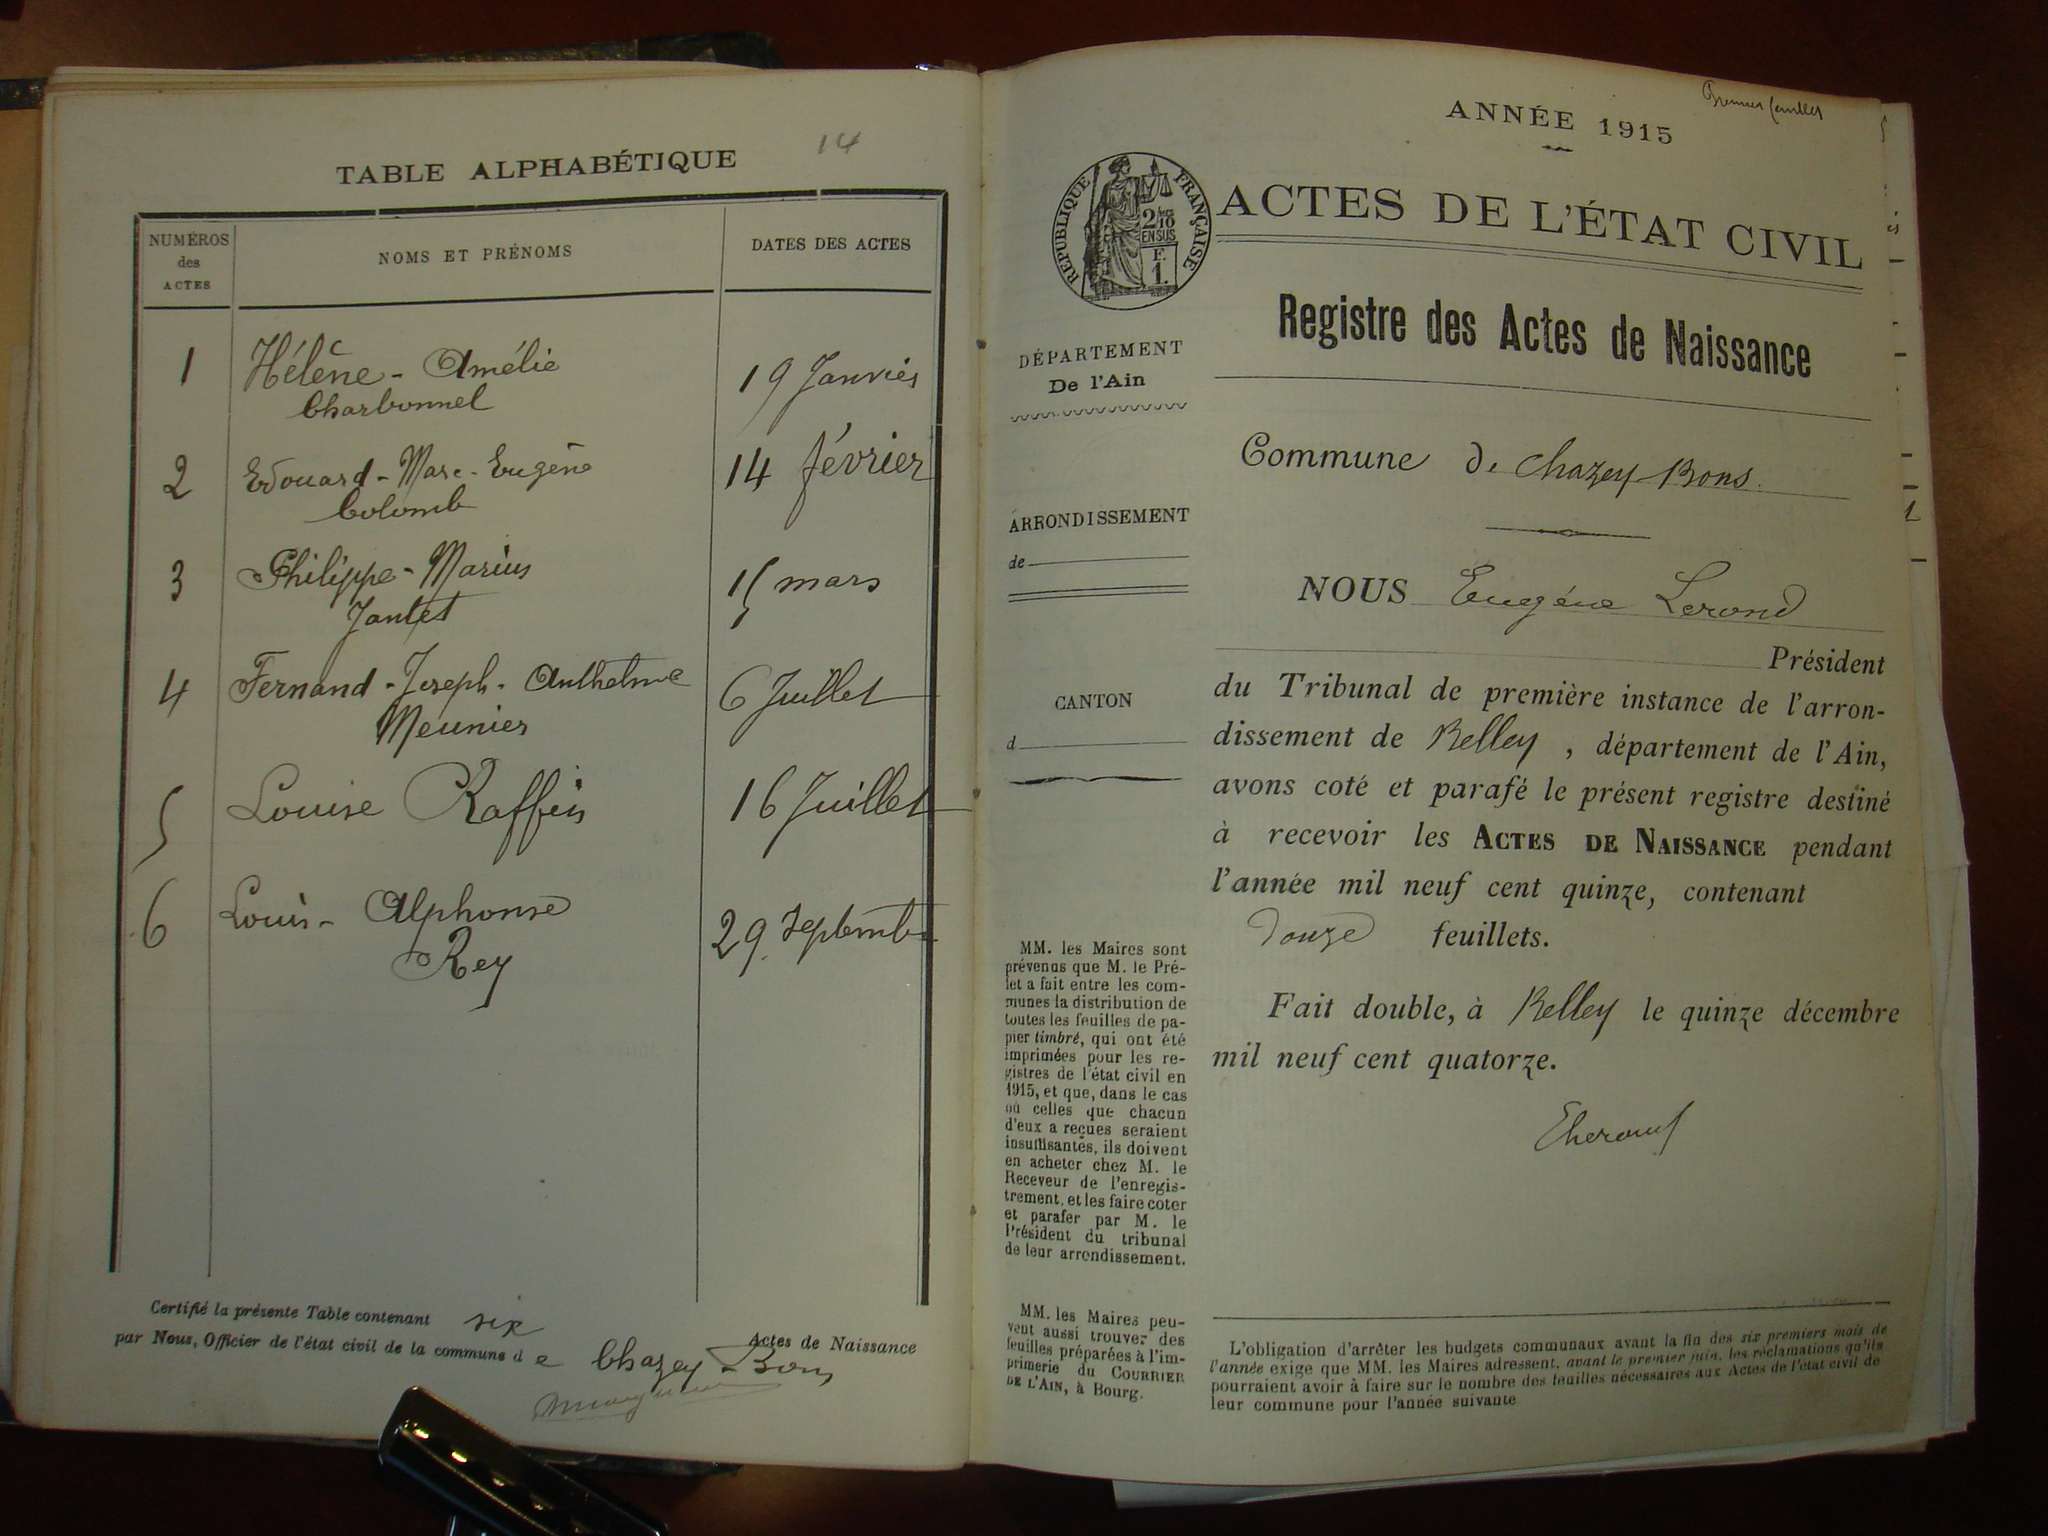 14
TABLE ALPHABÉTIQUE
NUMÉROS
des
ACTES
NOMS ET PRÉNOMS
DATES DES ACTES
1 Hélène - Amélie 19 Janvier
Charbonnel
2 Edouard - Marc - Eugène 14 février
Colomb
3 Philippe - Marius 15 mars
Jantet
4 Fernand - Joseph - Anthelme 6 Juillet
Meunier
5 Louise Raffin 16 Juillet
6 Louis - Alphonse 29 Septembre
Rey
Certifié la présente Table contenant six
Actes de Naissance
par Nous, Officier de l'état civil de la commune de Chazey-Bons
Premier feuillet
ANNÉE 1915
RÉPUBLIQUE FRANÇAISE
2/10
EN SUS
F.
1.
ACTES DE L'ÉTAT CIVIL
Registre des Actes de Naissance
DÉPARTEMENT
De l'Ain
Commune de Chazey-Bons.
ARRONDISSEMENT
de
CANTON
d
NOUS Eugène Lerond
Président
du Tribunal de première instance de l'arron-
dissement de Belley, département de l'Ain,
avons coté et parafé le présent registre destiné
à recevoir les ACTES DE NAISSANCE pendant
l'année mil neuf cent quinze, contenant
douze feuillets.
Fait double, à Belley le quinze décembre
mil neuf cent quatorze.
MM. les Maires sont
prévenus que M. le Pré-
fet a fait entre les com-
munes la distribution de
toutes les feuilles de pa-
pier timbré, qui ont été
imprimées pour les re-
gistres de l'état civil en
1915, et que, dans le cas
où celles que chacun
d'eux a reçues seraient
insuffisantes, ils doivent
en acheter chez M. le
Receveur de l'enregis-
trement, et les faire coter
et parafer par M. le
Président du tribunal
de leur arrondissement.
MM. les Maires peu-
vent aussi trouver des
feuilles préparées à l'im-
primerie du COURRIER
DE L'AIN, à Bourg.
L'obligation d'arrêter les budgets communaux avant la fin des six premiers mois de
l'année exige que MM. les Maires adressent, avant le premier juin, les réclamations qu'ils
pourraient avoir à faire sur le nombre des feuilles nécessaires aux Actes de l'état civil de
leur commune pour l'année suivante